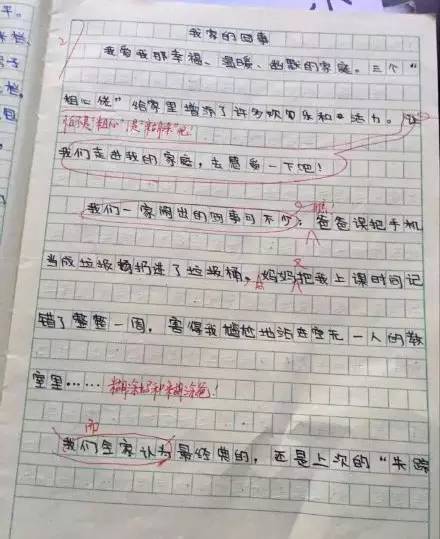 我家的囧事
我爱我那幸福、温暖、幽默的家庭。三个“
粗心佬”给家里增添了许多欢乐和活力。让
怕不是“粗心”是“糊涂”吧
我们走进我的家庭，去感受一下吧！
瞧！
我们一家闹出的囧事可不少：爸爸误把手机
又
当成垃圾桶扔进了垃圾桶，妈妈把我上课时间记
错了整整一周，害得我尴尬地站在空无一人的教
室里……糊涂妈和糊涂爸！
而
我们全家认为最经典的，还是上次的“失踪